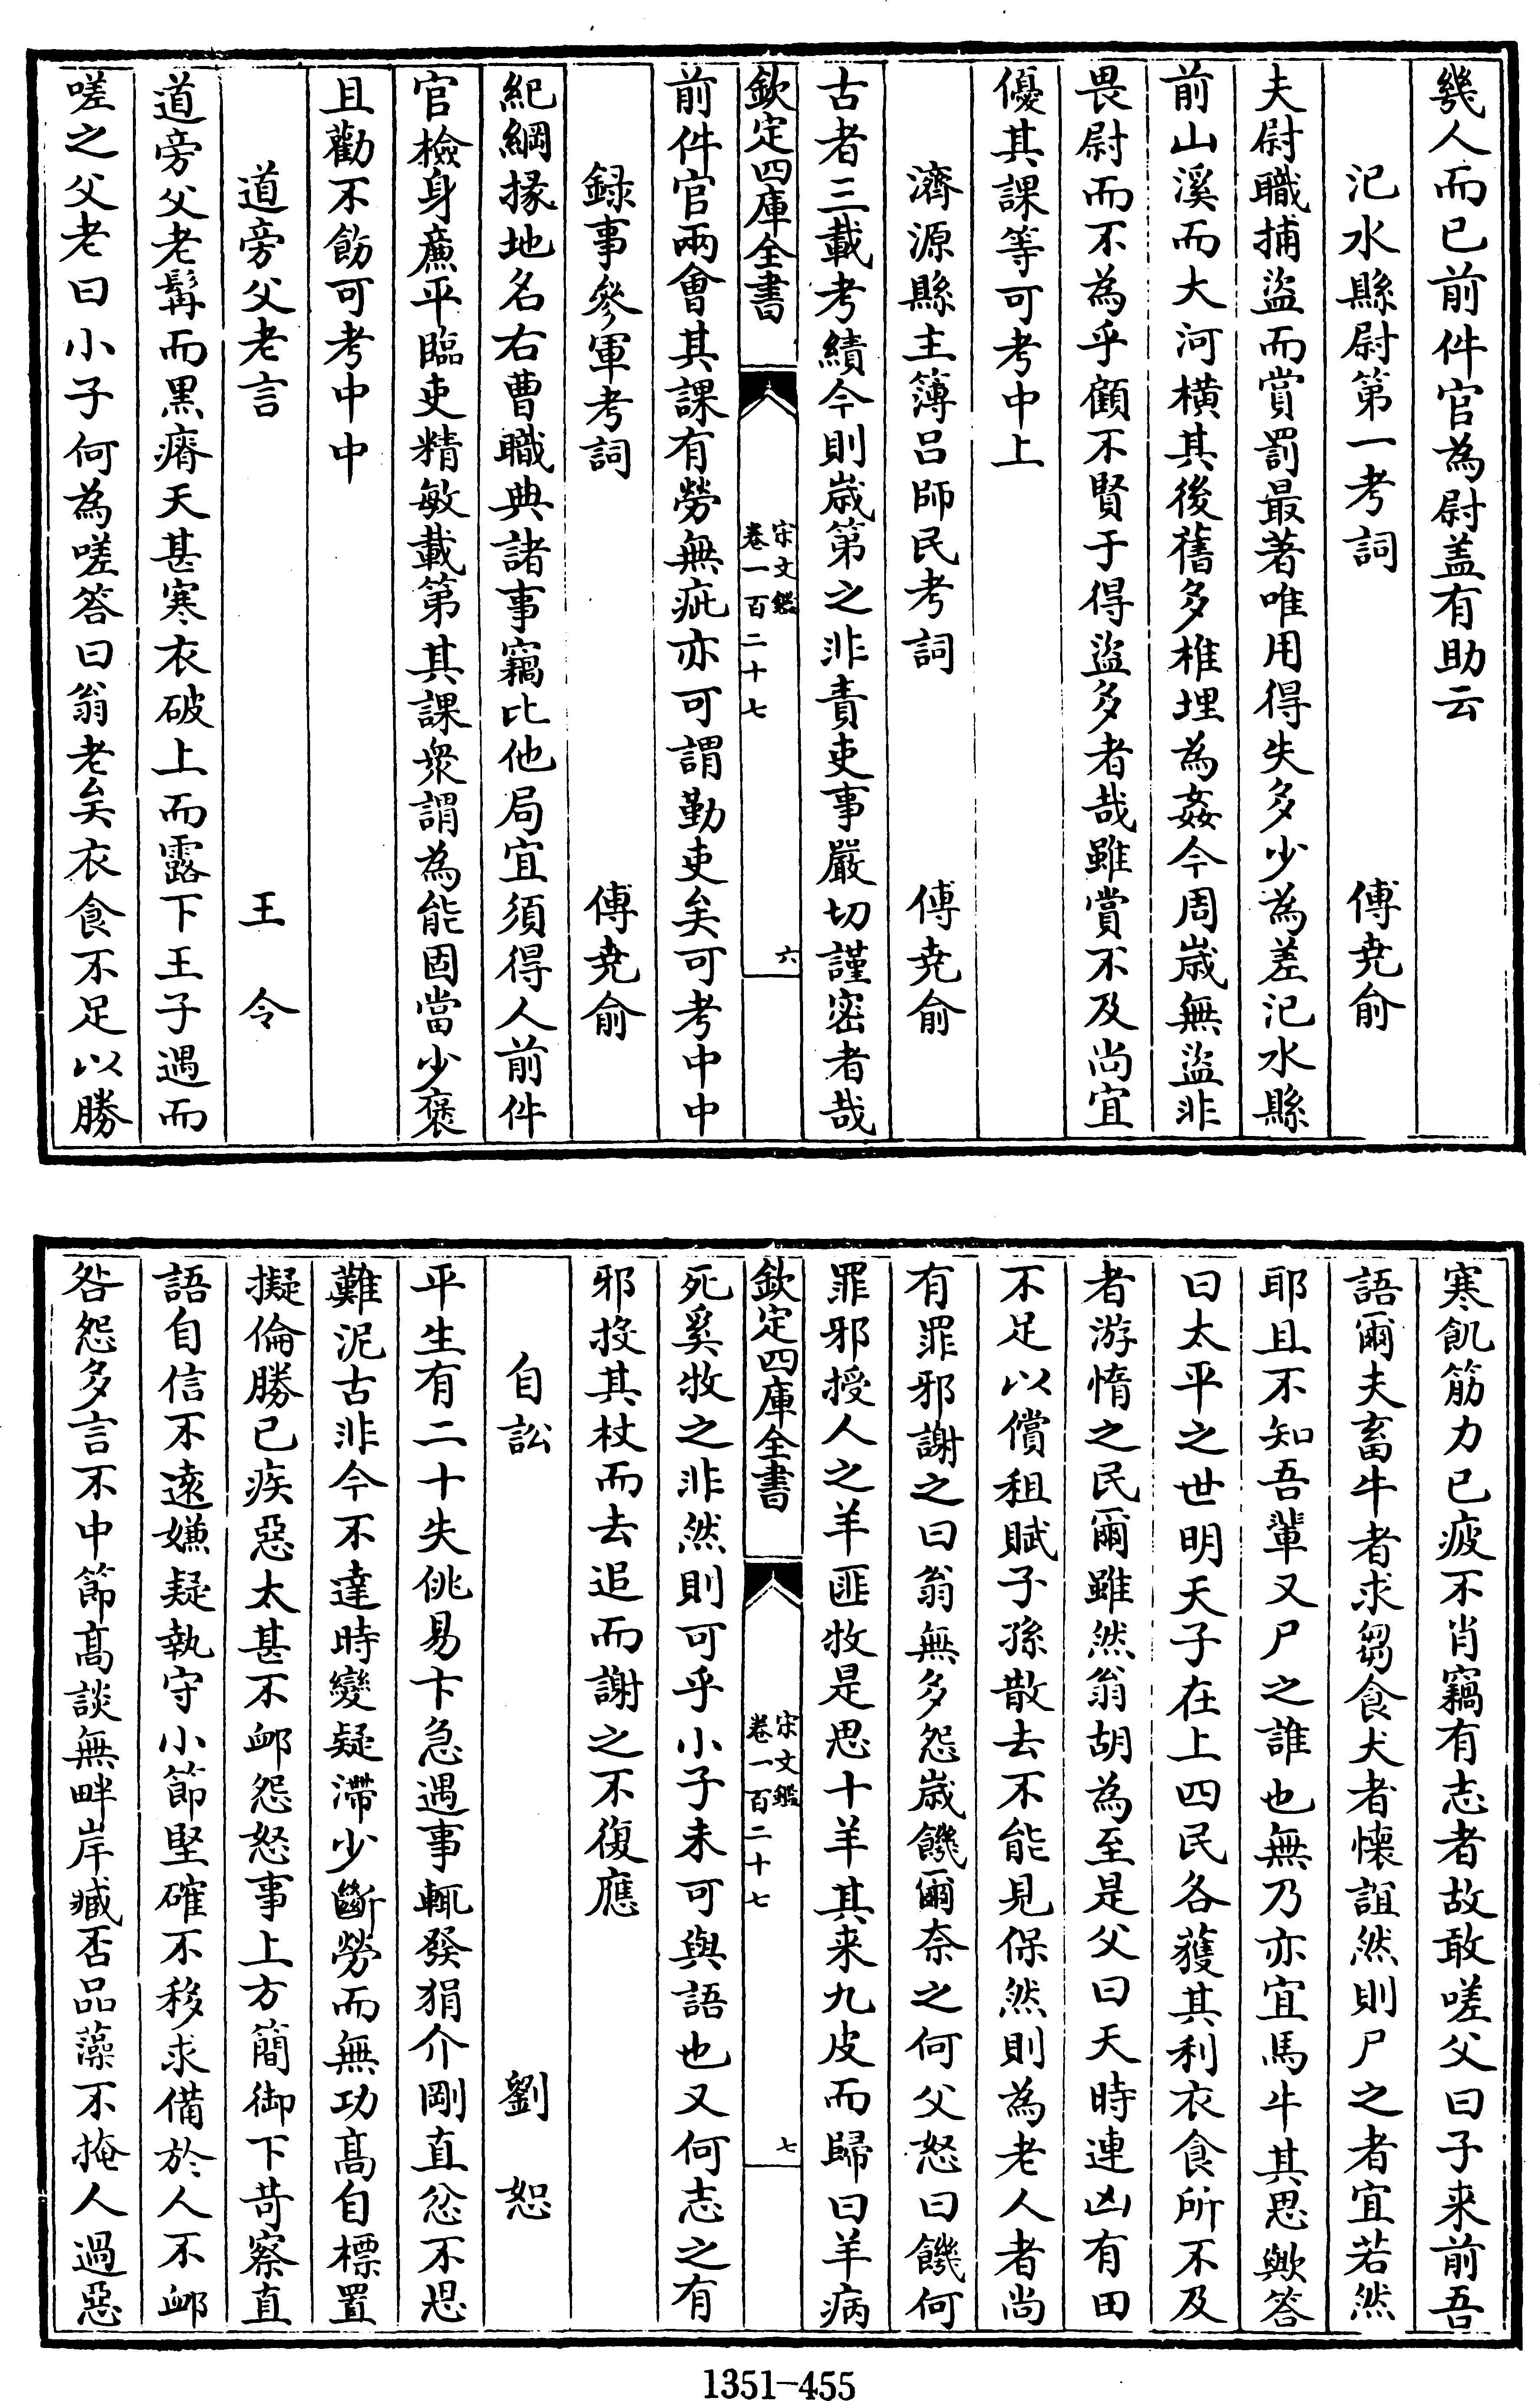 幾人而已前件官為尉盖有助云
汜水縣尉第一考詞 傅尭俞
夫尉職捕盜而賞罰最著唯用得失多少為差汜水縣
前山溪而大河橫其後舊多椎埋為姦今周歲無盜非
畏尉而不為乎顧不賢于得盜多者哉雖賞不及尚宜
優其課等可考中上
濟源縣主簿呂師民考詞 傅尭俞
古者三載考績今則歲第之非責吏事嚴切謹密者哉
欽定四庫全書 宋文鑑 卷一百二十七 六
前件官兩會其課有勞無疵亦可謂勤吏矣可考中中
録事參軍考詞 傅尭俞
紀綱掾地名右曹職典諸事竊比他局宜須得人前件
官檢身廉平臨吏精敏載第其課衆謂為能固當少褒
且勸不飭可考中中
道旁父老言 王令
道旁父老髯而黑瘠天甚寒衣破上而露下王子遇而
嗟之父老曰小子何為嗟答曰翁老矣衣食不足以勝
寒飢筋力已疲不肖竊有志者故敢嗟父曰子来前吾
語爾夫畜牛者求芻食犬者懐詛然則尸之者宜若然
耶且不知吾輩又尸之誰也無乃亦宜馬牛其思歟答
曰太平之世明天子在上四民各獲其利衣食所不及
者游惰之民爾雖然翁胡為至是父曰天時連凶有田
不足以償租賦子孫散去不能見保然則為老人者尚
有罪邪謝之曰翁無多怨歲饑爾奈之何父怒曰饑何
罪邪授人之羊匪牧是思十羊其来九皮而歸曰羊病
欽定四庫全書 宋文鑑 卷一百二十七 七
死奚牧之非然則可乎小子未可與語也又何志之有
邪投其杖而去追而謝之不復應
自訟 劉恕
平生有二十失佻易卞急遇事輒發狷介剛直忿不思
難泥古非今不達時變疑滯少斷勞而無功髙自標置
擬倫勝已疾惡太甚不䘏怨怒事上方簡御下苛察直
語自信不遠嫌疑執守小節堅確不移求備於人不䘏
咎怨多言不中節髙談無畔岸臧否品藻不掩人過惡
1351-455